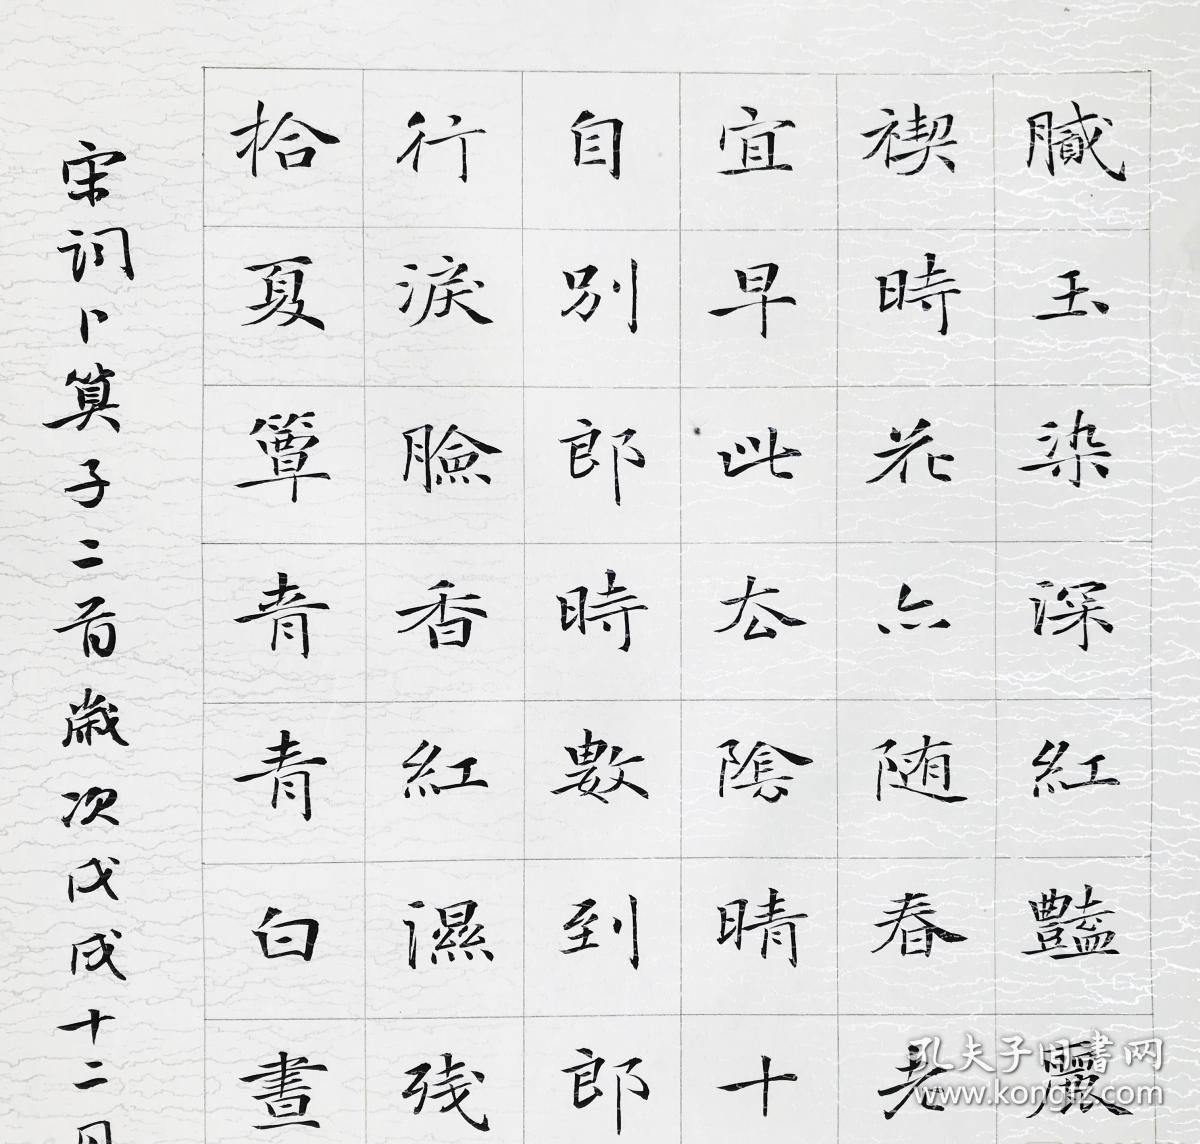 膩玉染深紅豔
禊時花亦随春老
宜早此厺陰晴十
自別郎時數到郎
行淚臉香紅濕残
拾夏簟青青白晝
宋词卜算子二首歲次戊戌十二月
孔夫子旧書网
www.kongfz.com